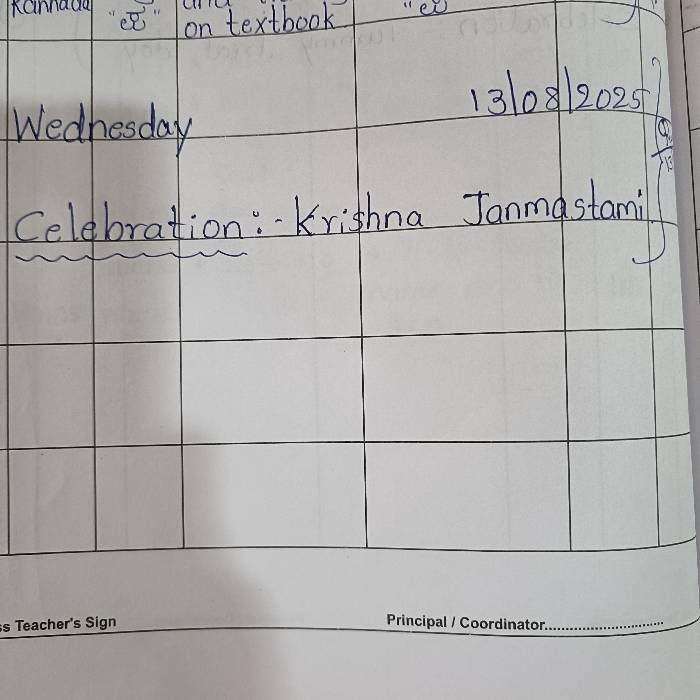 Kannada
on textbook
Wednesday 13/08/2025
Celebration:- Krishna Janmastami
ss Teacher's Sign Principal / Coordinator..............................